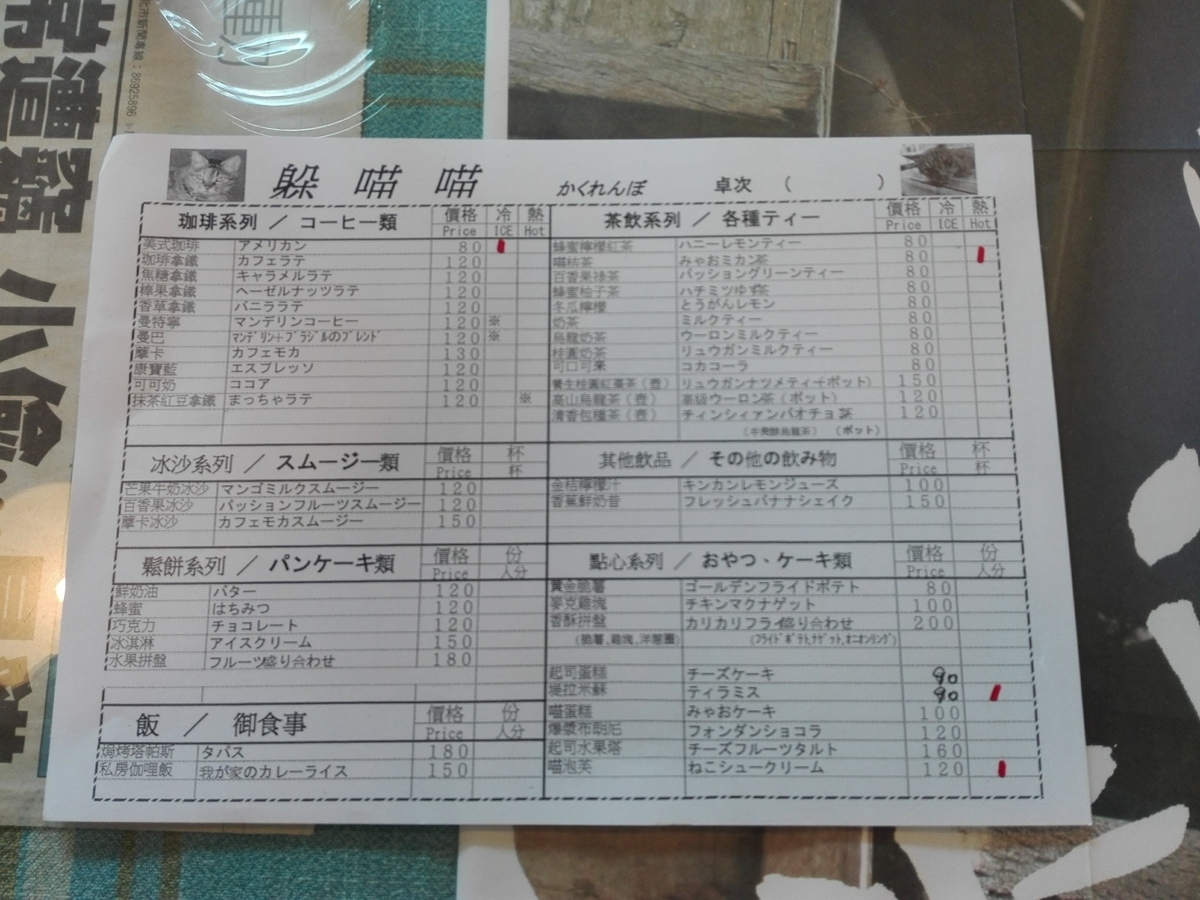 躲 喵 喵 かくれんぼ 卓次 ( )
珈琲系列 / コーヒー類 價格 Price 冷 ICE 熱 Hot
美式珈琲 アメリカン 80
珈琲拿鐵 カフェラテ 120
焦糖拿鐵 キャラメルラテ 120
榛果拿鐵 ヘーゼルナッツラテ 120
香草拿鐵 バニララテ 120
曼特寧 マンデリンコーヒー 120 ※
曼巴 マンデリン+ブラジルのブレンド 120 ※
摩卡 カフェモカ 130
康寶藍 エスプレッソ 120
可可奶 ココア 120
抹茶紅豆拿鐵 まっちゃラテ 120 ※
冰沙系列 / スムージー類 價格 Price 杯 杯
芒果牛奶冰沙 マンゴミルクスムージー 120
百香果冰沙 パッションフルーツスムージー 120
摩卡冰沙 カフェモカスムージー 150
鬆餅系列 / パンケーキ類 價格 Price 份 人分
鮮奶油 バター 120
蜂蜜 はちみつ 120
巧克力 チョコレート 120
冰淇淋 アイスクリーム 150
水果拼盤 フルーツ盛り合わせ 180
飯 / 御食事 價格 Price 份 人分
焗烤塔帕斯 タパス 180
私房伽哩飯 我が家のカレーライス 150
茶飲系列 / 各種ティー 價格 Price 冷 ICE 熱 Hot
蜂蜜檸檬紅茶 ハニーレモンティー 80
喵桔茶 みゃおミカン茶 80
百香果綠茶 パッショングリーンティー 80
蜂蜜柚子茶 ハチミツゆず茶 80
冬瓜檸檬 とうがんレモン 80
奶茶 ミルクティー 80
烏龍奶茶 ウーロンミルクティー 80
桂圓奶茶 リュウガンミルクティー 80
可口可樂 コカコーラ 80
養生桂圓紅棗茶(壺) リュウガンナツメティー(ポット) 150
高山烏龍茶(壺) 高級ウーロン茶(ポット) 120
清香包種茶(壺) チィンシィァンパオチョ茶 120
(半発酵烏龍茶) (ポット)
其他飲品 / その他の飲み物 價格 Price 杯 杯
金桔檸檬汁 キンカンレモンジュース 100
香蕉鮮奶昔 フレッシュバナナシェイク 150
點心系列 / おやつ、ケーキ類 價格 Price 份 人分
黄金脆薯 ゴールデンフライドポテト 80
麥克雞塊 チキンマクナゲット 100
香酥拼盤 カリカリフライ盛り合わせ 200
(脆薯,雞塊,洋蔥圈) (フライドポテト,ナゲット,オニオンリング)
起司蛋糕 チーズケーキ 90
堤拉米酥 ティラミス 90
喵蛋糕 みゃおケーキ 100
爆漿布朗尼 フォンダンショコラ 120
起司水果塔 チーズフルーツタルト 160
喵泡芙 ねこシュークリーム 120